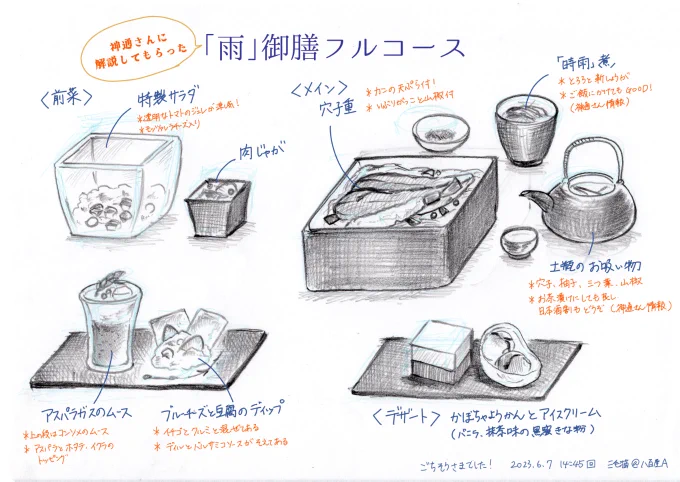 神通さんに
解説してもらった
「雨」御膳フルコース
〈前菜〉
特製サラダ
*透明なトマトのジュレが涼し気!
*モッツァレラチーズ入り
肉じゃが
〈メイン〉
穴子重
*カニの天ぷら付!
*いぶりがっこと山椒付
「時雨」煮
*とろろと新しょうが
*ご飯にかけてもGOOD!
(神通さん情報)
土瓶のお吸い物
*穴子、柚子、三つ葉、山椒
*お茶漬けにしても良し
日本酒割もどうぞ(神通さん情報)
アスパラガスのムース
*上の段はコンソメのムース
*アスパラとホタテ、イクラの
トッピング
ブルーチーズと豆腐のディップ
*イチゴとクルミと混ぜてある
*ディルとバルサミコソースがそえてある
〈デザート〉
かぼちゃようかんとアイスクリーム
(バニラ、抹茶味の黒蜜きな粉)
ごちそうさまでした! 2023.6.7 14:45回 三毛猫@八百屋A